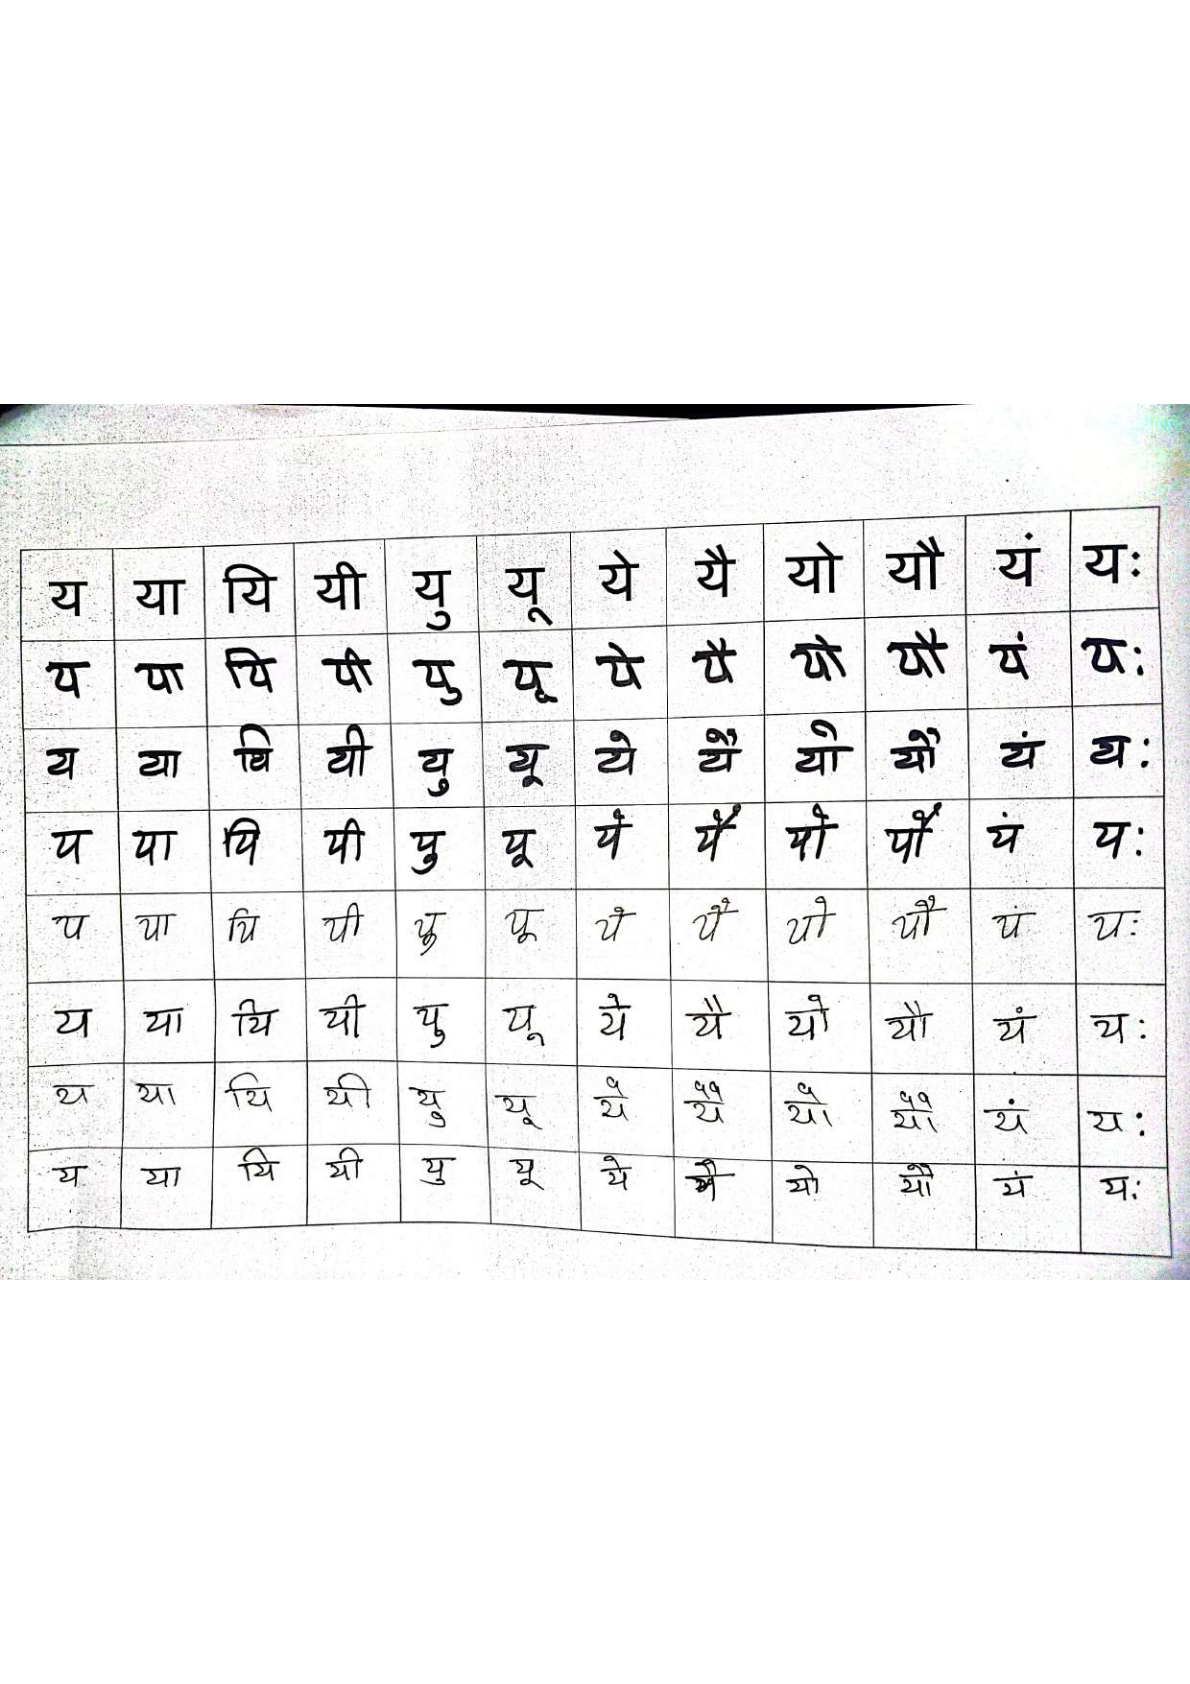 य या यि यी यु यू ये यै यो यौ यं यः
य या यि यी यु यू ये यै यो यौ यं यः
य या यि यी यु यू ये यै यो यौ यं यः
य या यि यी यु यू ये यै यो यौ यं यः
य या यि यी यु यू ये यै यो यौ यं यः
य या यि यी यु यू ये यै यो यौ यं यः
य या यि यी यु यू ये यै यो यौ यं यः
य या यि यी यु यू ये यै यो यौ यं यः